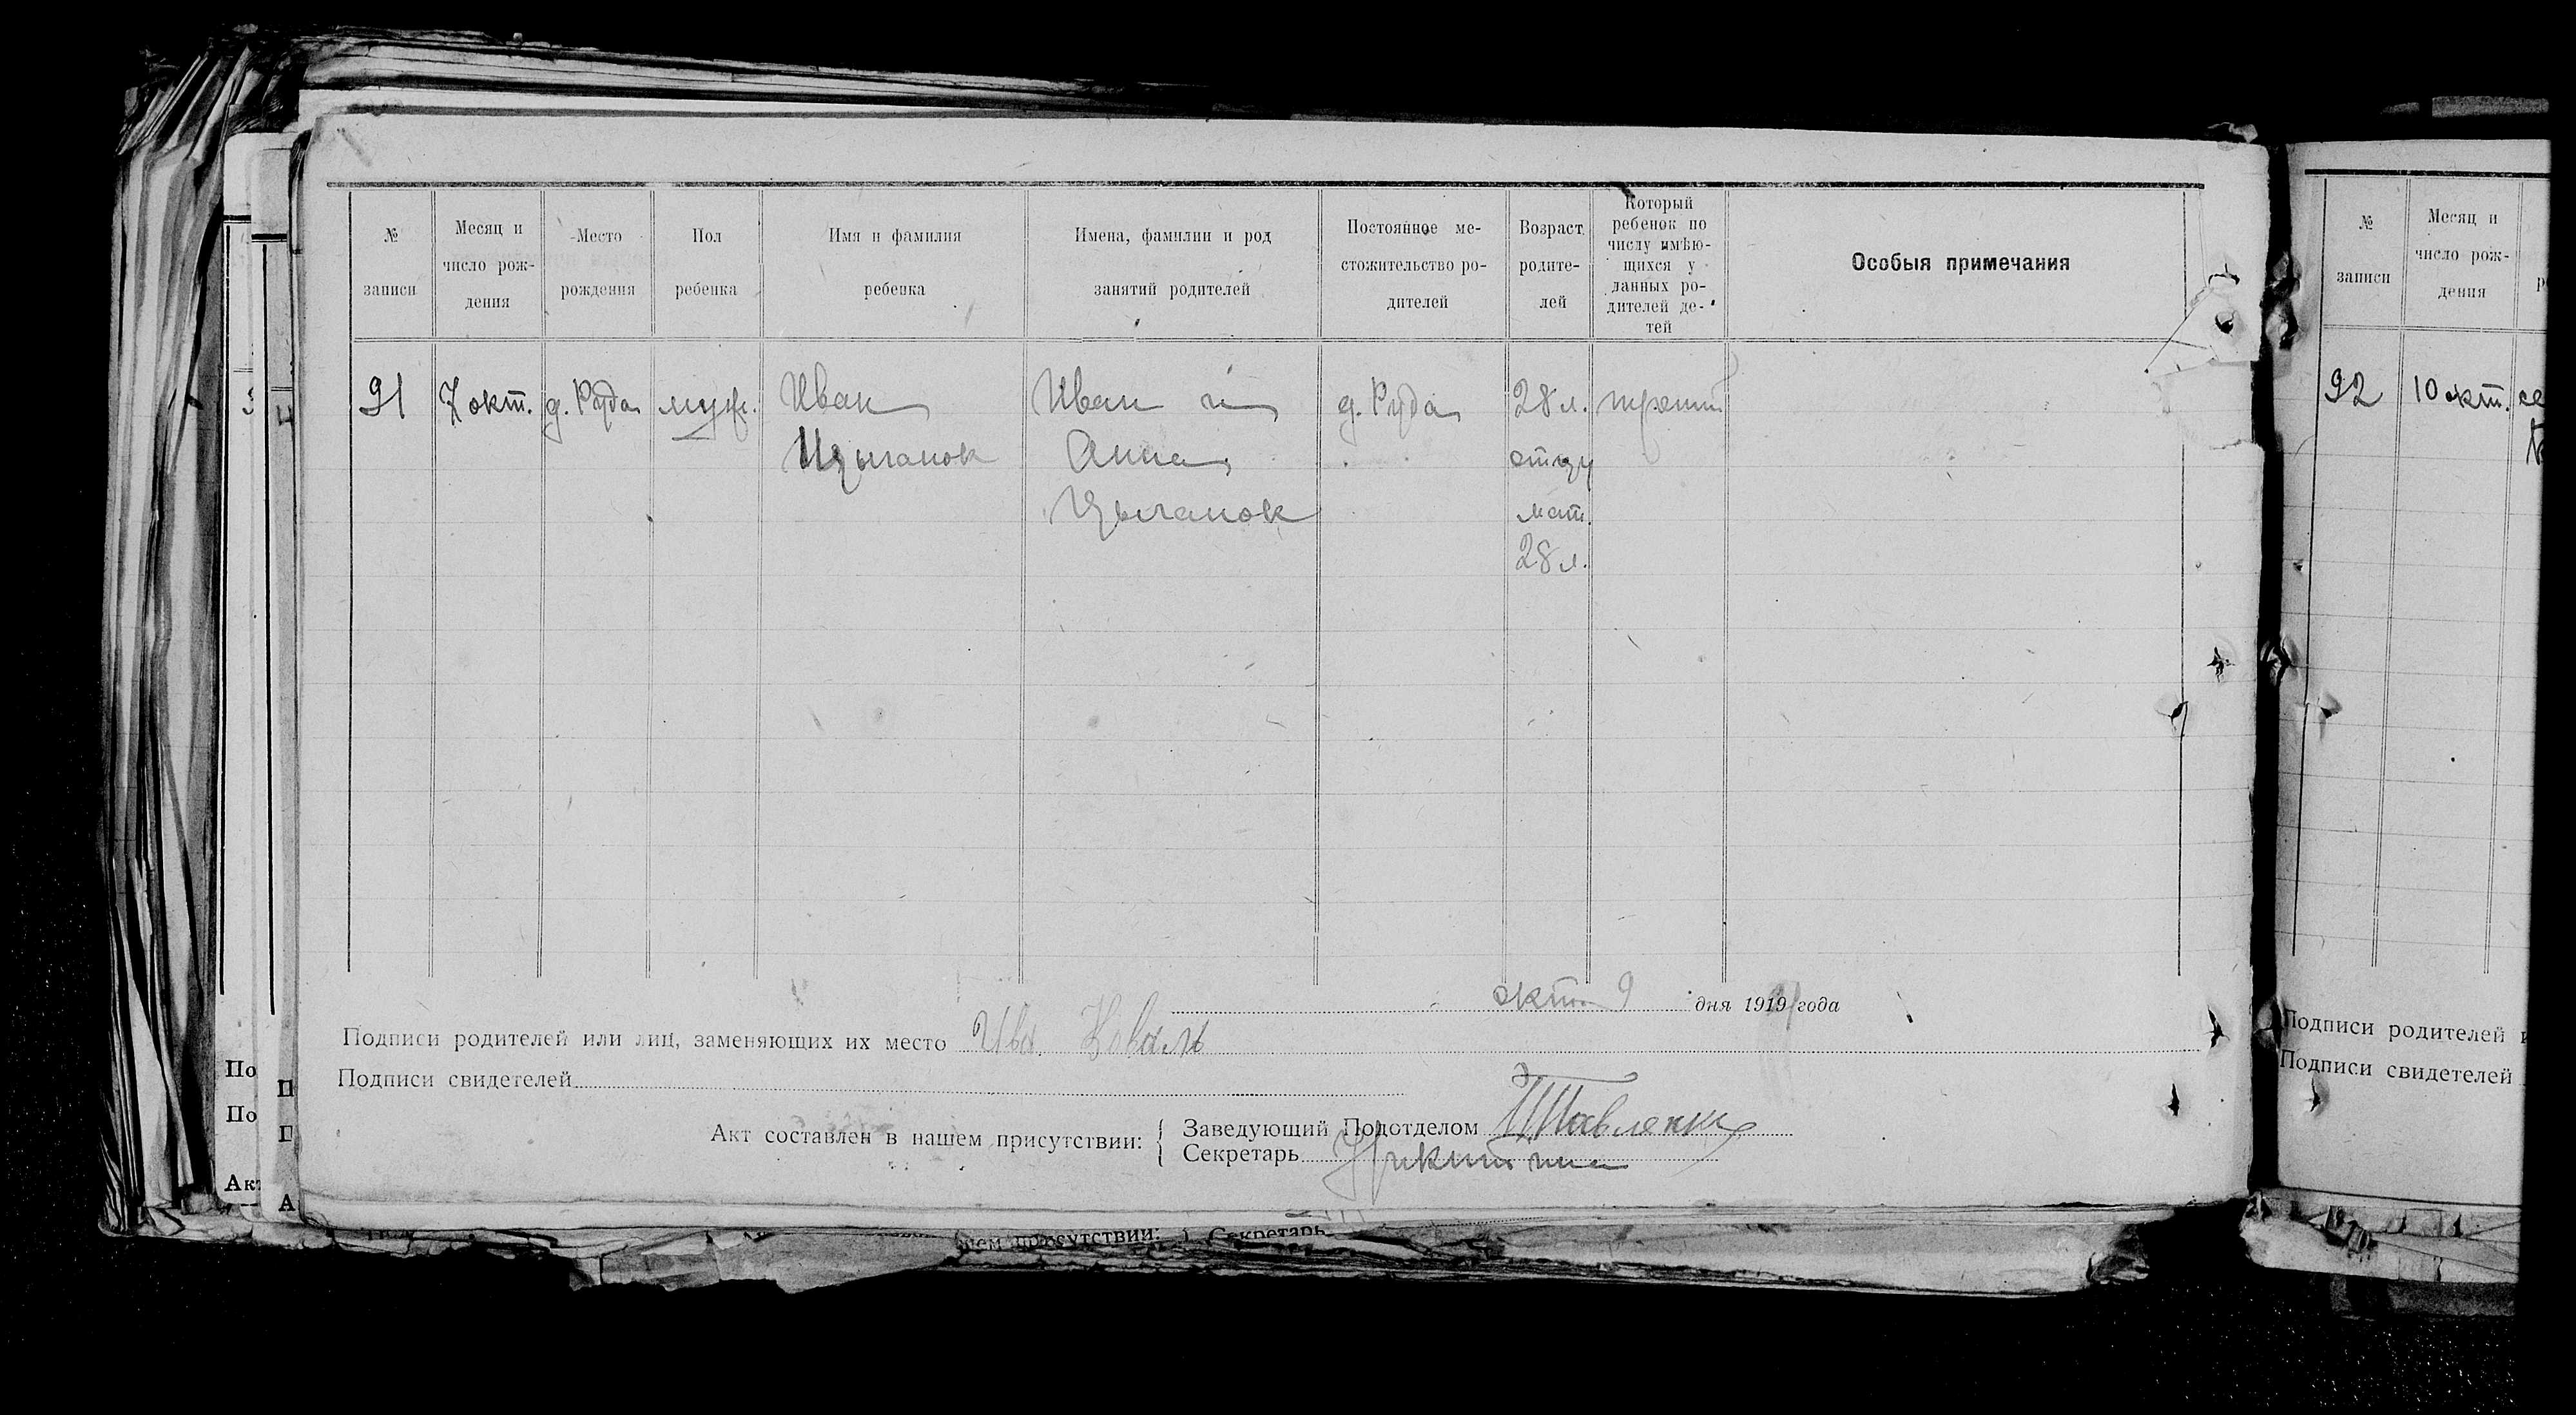 № записи
Месяц и число рож-дения
Место рождения
Пол ребенка
Имя и фамилия ребенка
Имена, фамилии и род занятий родителей
Постоянное ме-стожительство ро-дителей
Возраст родите-лей
Который ребенок по числу имѣю-щихся у данных ро-дителей де-тей
Особыя примечания
91
7 окт.
д. Руда
муж.
Иван
Цыганок
Иван и
Анна
Цыганок
д. Руда
28 л.
отцу
мат.
28 л.
третий
окт. 9 дня 1919 года
Подписи родителей или лиц, заменяющих их место Ива. Коваль
Подписи свидетелей
Акт составлен в нашем присутствии:
Заведующий Подотделом
Секретарь
нем присутствии: Секретарь
№ записи
Месяц и число рож-дения
92
10 окт.
Подписи родителей и
Подписи свидетелей